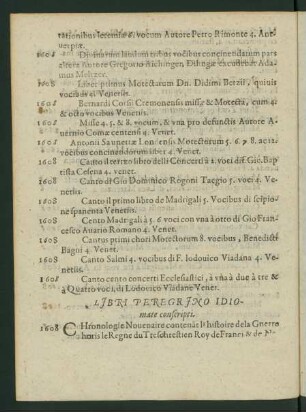 rationibus recensitæ, vocum Autore Petro Rimonte 4. Ant-
uerpiæ.
1608 Diuinarum laudum tribus vocibus concinendarum pars
altera Autore Gregorio Aichinger, Dilingæ excudebat Ada-
mus Meltzer.
1608 Liber primus Motectarum Dn. Didimi Betzii, quinis
vocibus 4. Venetiis.
1608 Bernardi Corsi Cremonensis missæ & Motecta, cum 4.
& octo vocibus Venetiis.
1608 Missæ 4. 5. 8. vocum, & vna pro defunctis Autore A-
uernio Comæ centensi 4. Venet.
1608 Antonii Sauuetiæ Leniensis Motectorum 5. 6. 7. 8. ac 12.
vocibus concinendorum liber 2. 4. Venet.
1608 Canto il terzo libro delli Concerti à 1. voci di Gio. Bap-
tista Cesena 4. Venet.
1608 Canto di Gio Dominico Rogoni Taegio 5. voci 4. Ve-
netiis.
1608 Canto il primo libro de Madrigali 5. Vocibus di scipio-
ne spanenta Venetiis.
1608 Cento Madrigali à 5. 6 voci con vna à otto di Gio Fran-
cesco Auario Romano 4. Venet.
1608 Cantus primi chori Motectorum 8. vocibus, Benedicti
Bagni 4 Venet.
1608 Canto Salmi 4. vocibus di F. lodouico Viadana 4. Ve-
netiis.
1608 Canto cento concerti Ecclesiastici, à vna à due à tre &
à Quatro voci, di Ludovico Viadane Venet.
LIBRI PEREGRINO IDIO-
mate conscripti.
1608 CHronologie Nouenaire contenãt l'histoire de la Guerre
horis le Regne du Treschrestien Roy de France & de